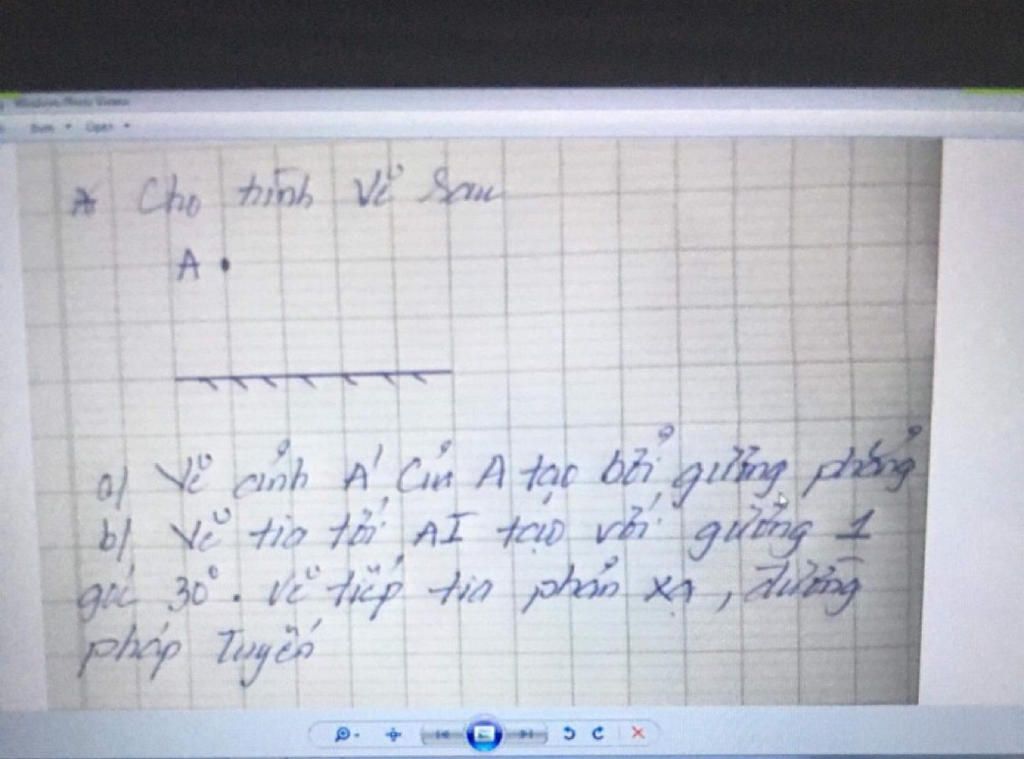 Windows Photo Viewer
Burn Open
* Cho hình vẽ sau
A
a) Vẽ ảnh A' Của A tạo bởi gương phẳng
b) Vẽ tia tới AI tạo với gương 1
góc 30°. Vẽ tiếp tia phản xạ, đường
pháp Tuyến